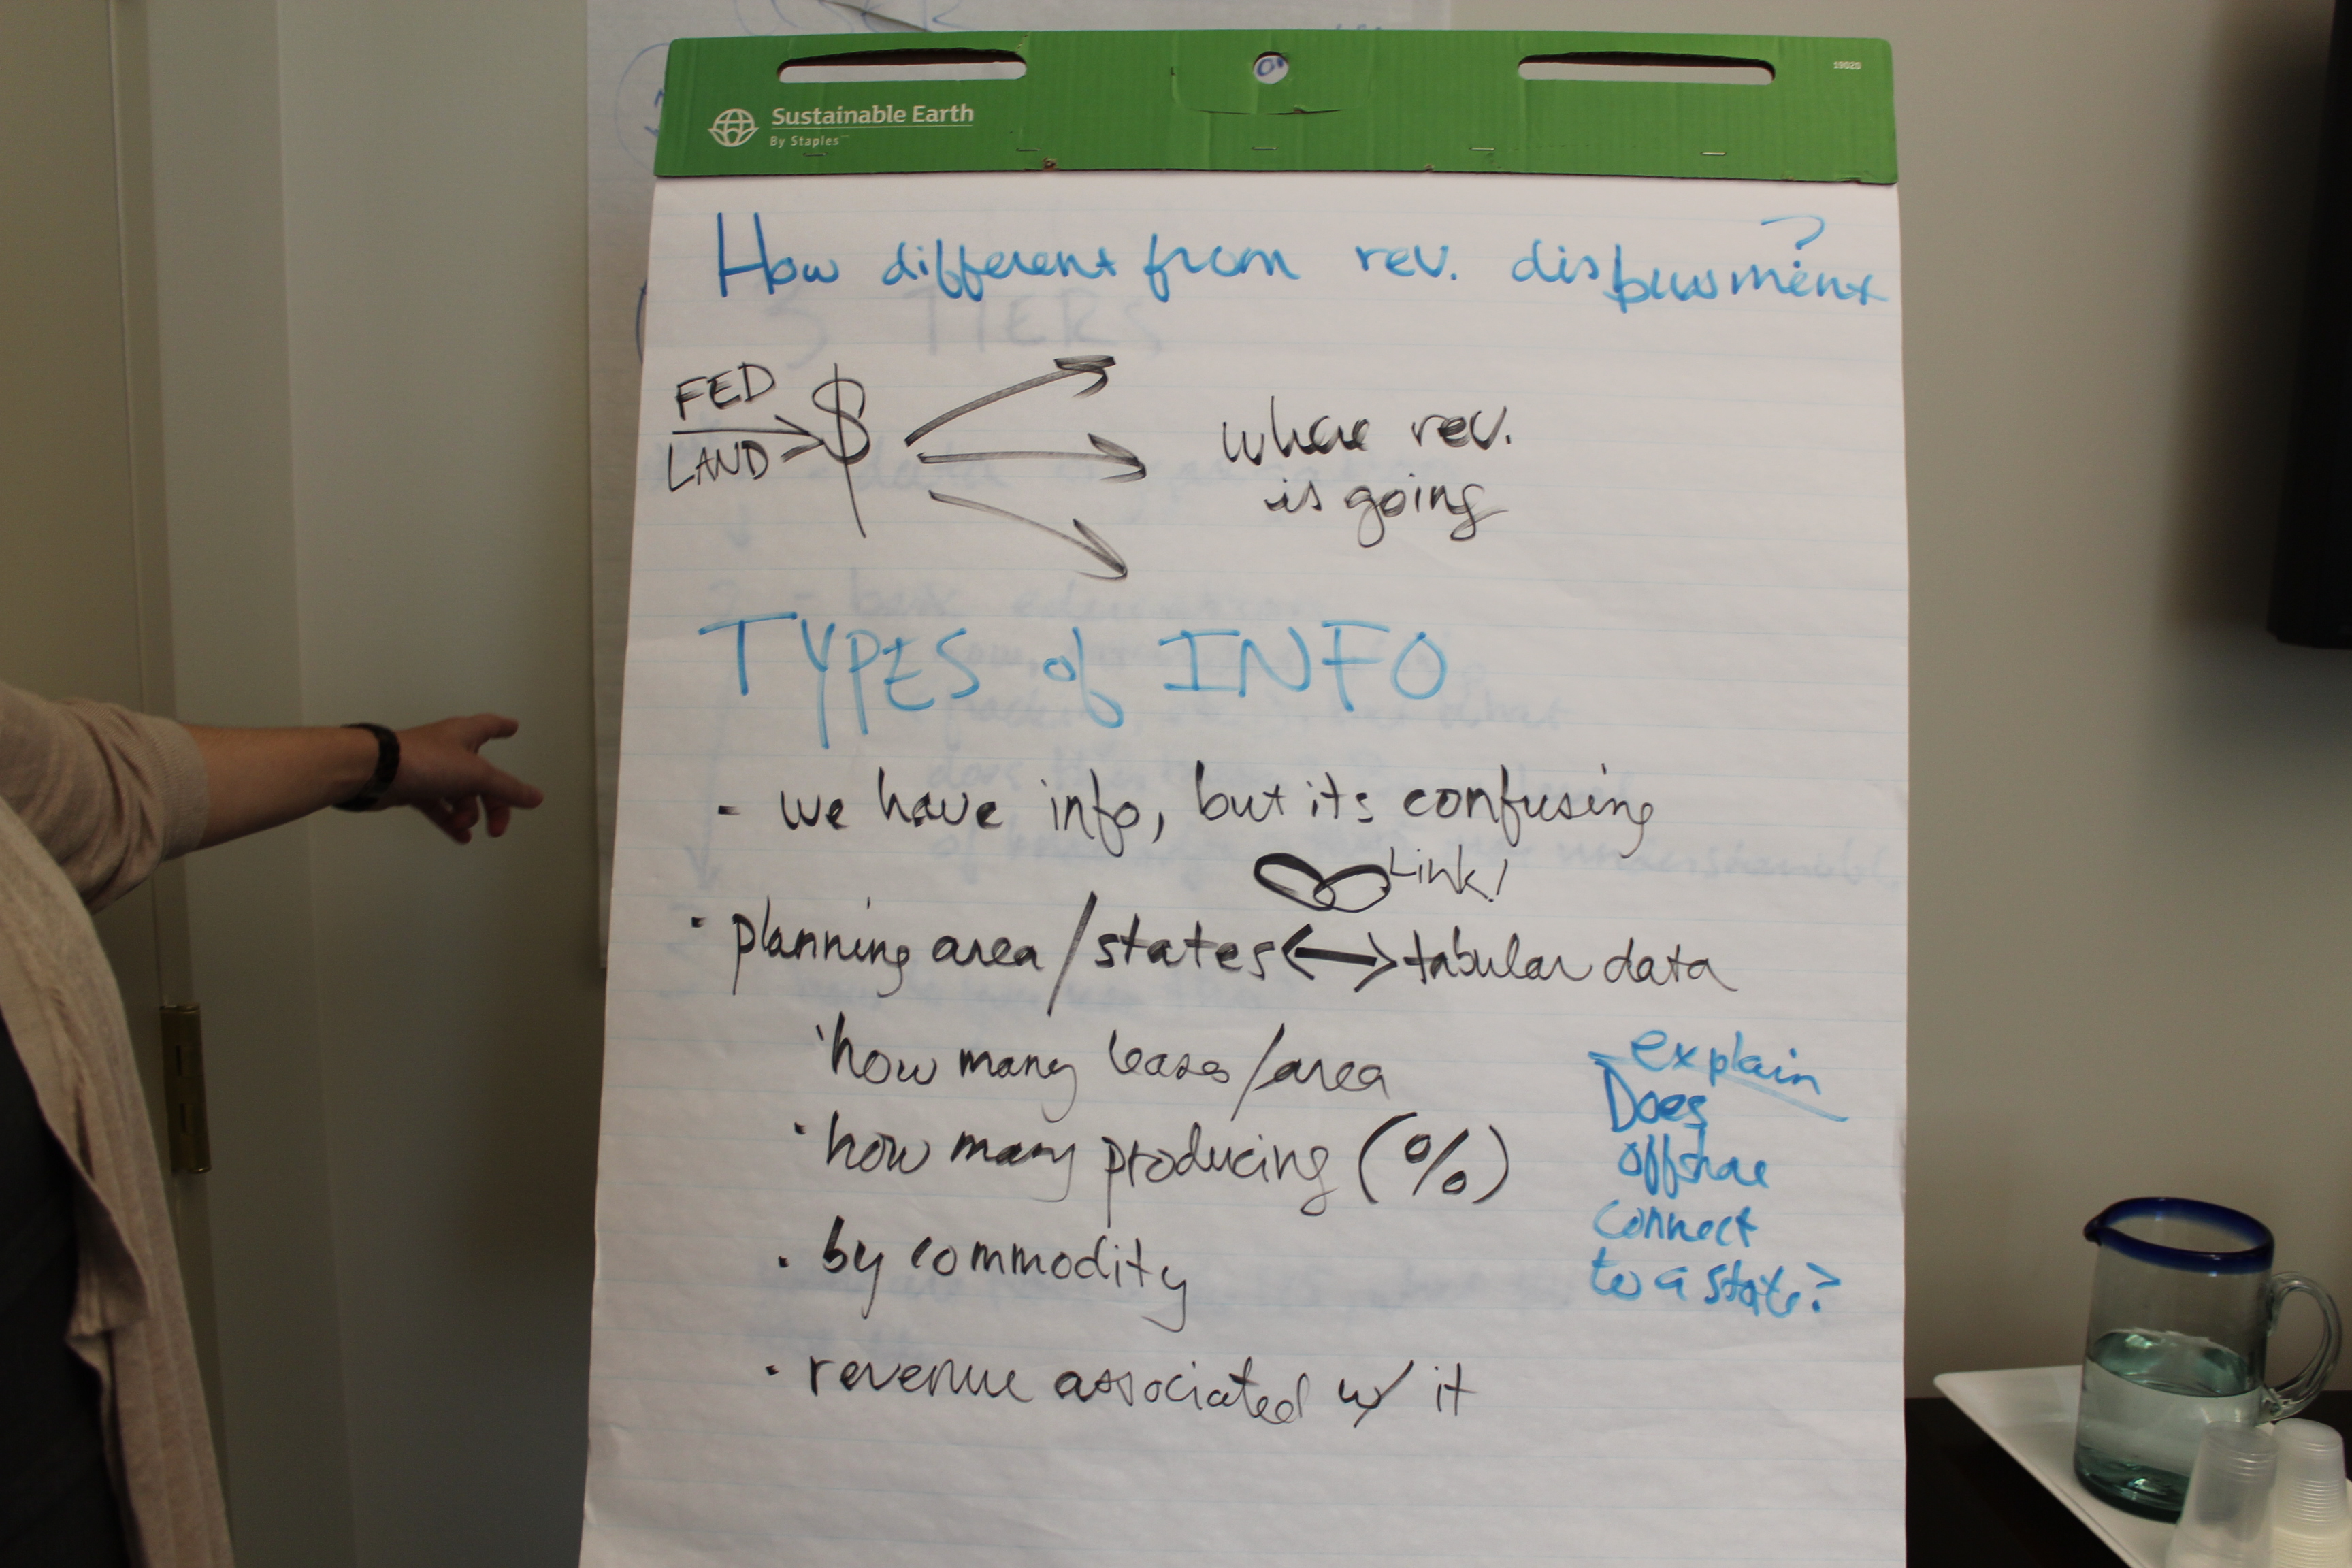 19020
Sustainable Earth
By Staples
How different from rev. disbursment?
FED
LAND
$
where rev.
is going
TYPES of INFO
- we have info, but its confusing
Link!
· planning area/states <-> tabular data
· how many leases/area
· how many producing (%)
· by commodity
· revenue associated w/ it
explain
Does
offshore
connect
to a state?
3 TIERS